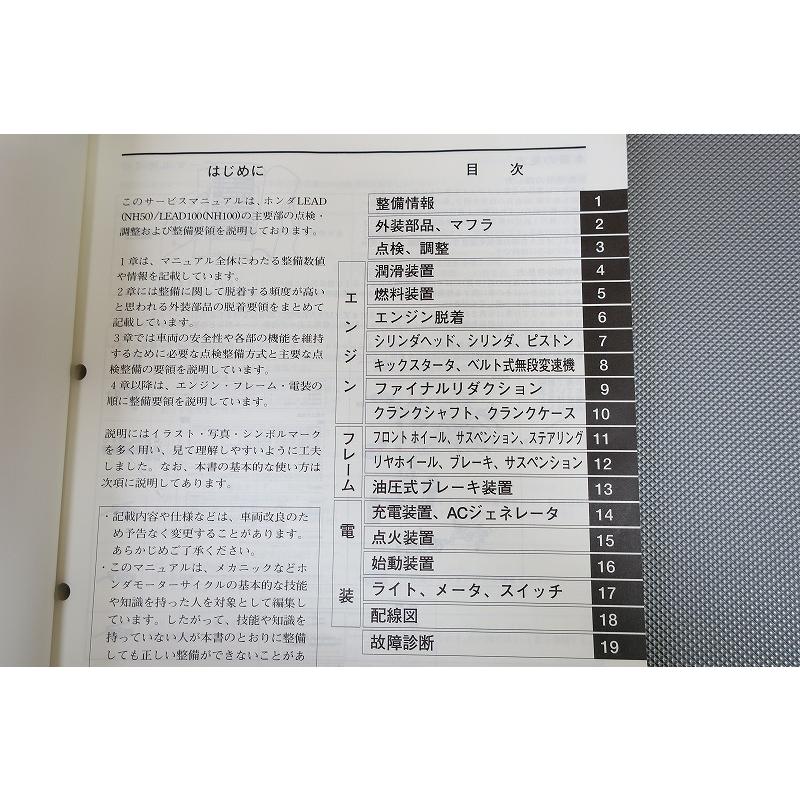 はじめに
このサービスマニュアルは、ホンダLEAD
(NH50)/LEAD100(NH100)の主要部の点検・
調整および整備要領を説明しております。
1章は、マニュアル全体にわたる整備数値
や情報を記載しています。
2章には整備に関して脱着する頻度が高い
と思われる外装部品の脱着要領をまとめて
記載しています。
3章では車両の安全性や各部の機能を維持
するために必要な点検整備方式と主要な点
検整備の要領を説明しています。
4章以降は、エンジン・フレーム・電装の
順に整備要領を説明しています。
説明にはイラスト・写真・シンボルマーク
を多く用い、見て理解しやすいように工夫
しました。なお、本書の基本的な使い方は
次項に説明してあります。
・記載内容や仕様などは、車両改良のた
め予告なく変更することがあります。
あらかじめご了承ください。
・このマニュアルは、メカニックなどホ
ンダモーターサイクルの基本的な技能
や知識を持った人を対象として編集し
ています。したがって、技能や知識を
持っていない人が本書のとおりに整備
しても正しい整備ができないことがあ
目 次
整備情報 1
外装部品、マフラ 2
点検、調整 3
エンジン
潤滑装置 4
燃料装置 5
エンジン脱着 6
シリンダヘッド、シリンダ、ピストン 7
キックスタータ、ベルト式無段変速機 8
ファイナルリダクション 9
クランクシャフト、クランクケース 10
フレーム
フロントホイール、サスペンション、ステアリング 11
リヤホイール、ブレーキ、サスペンション 12
油圧式ブレーキ装置 13
電装
充電装置、ACジェネレータ 14
点火装置 15
始動装置 16
ライト、メータ、スイッチ 17
配線図 18
故障診断 19